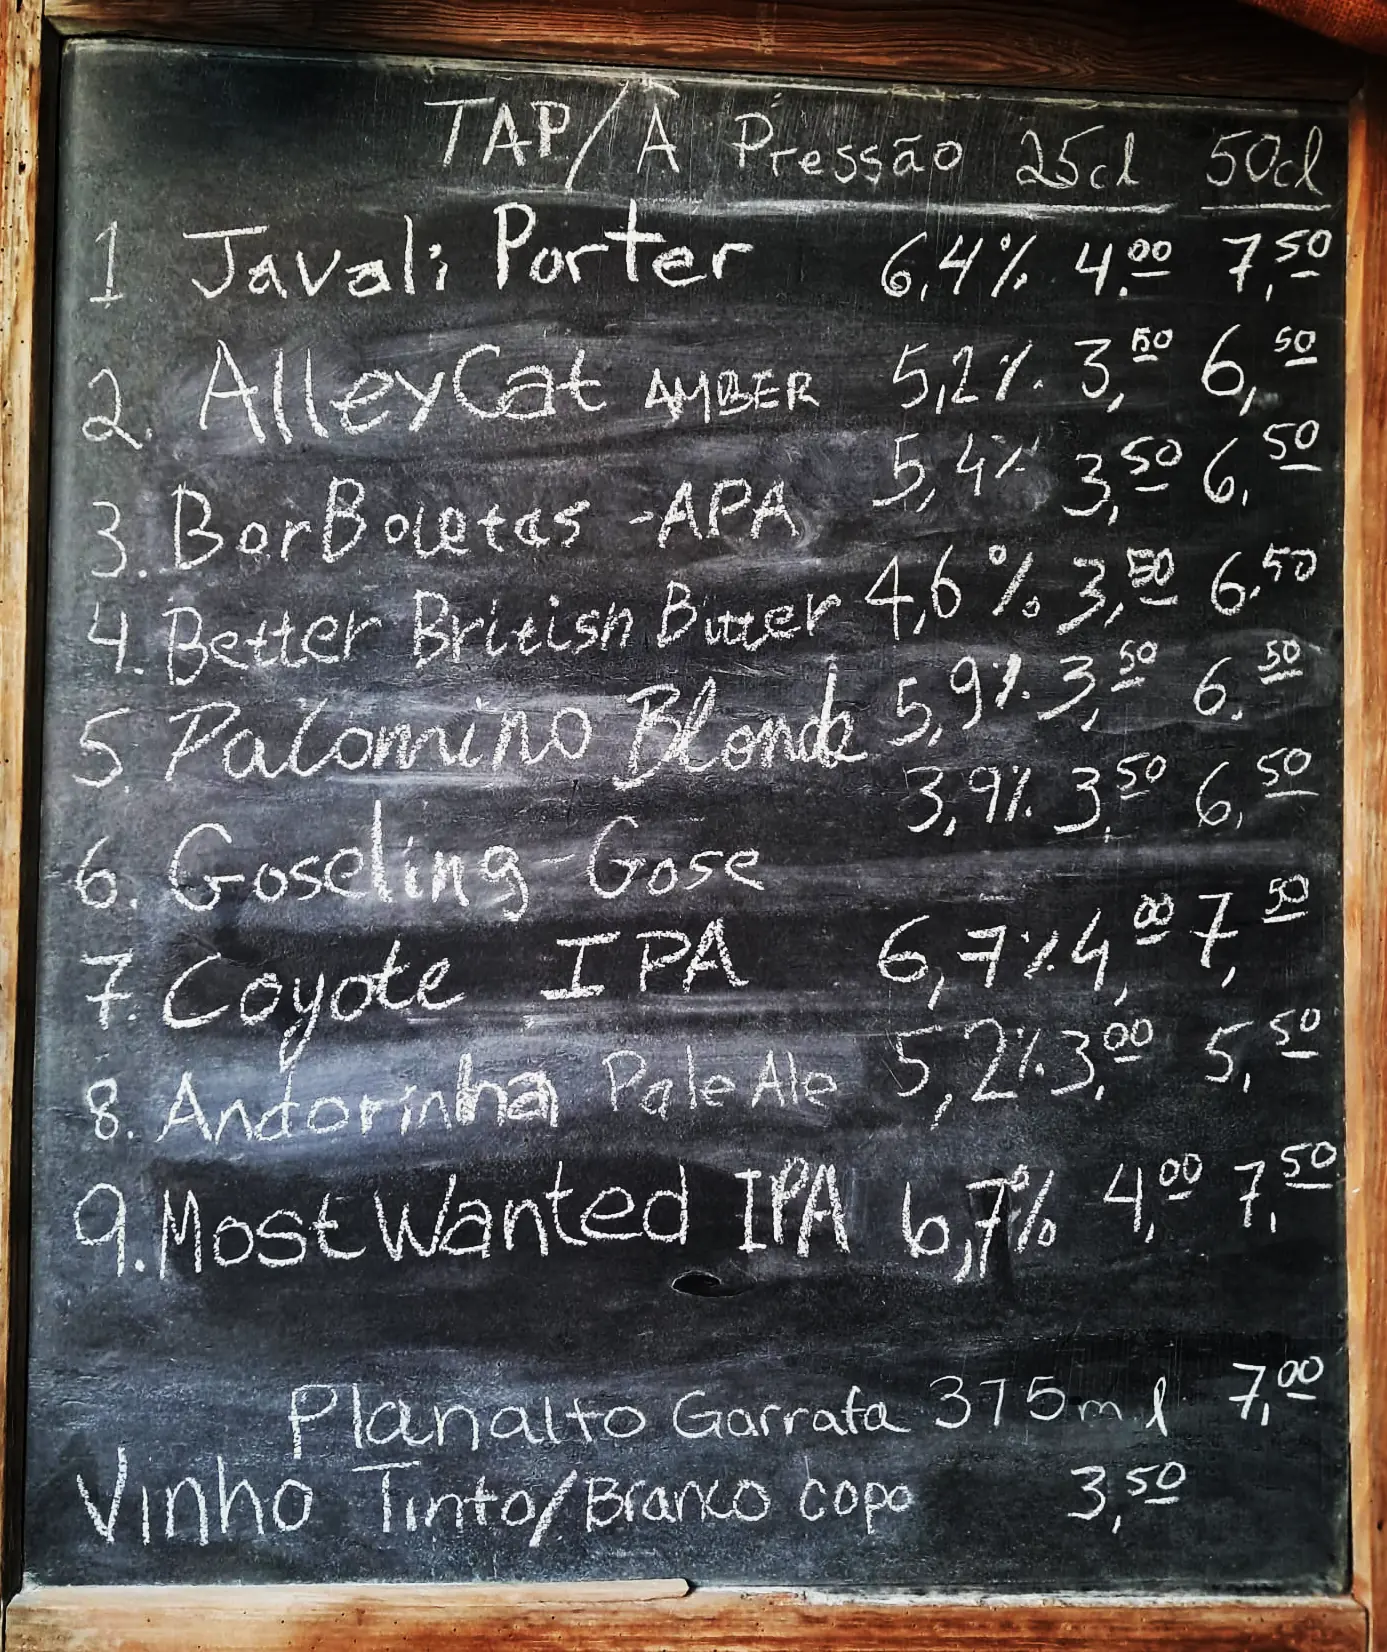 TAP/À Pressão 25cl 50cl
1 Javali Porter 6,4% 4.00 7,50
2. AlleyCat AMBER 5,2% 3,50 6,50
3. BorBoletas -APA 5,4% 3,50 6,50
4. Better British Bitter 4,6% 3,50 6.50
5. Palomino Blonde 5,9% 3,50 6.50
6. Goseling-Gose 3,9% 3,50 6,50
7. Coyote IPA 6,7% 4,00 7,50
8. Andorinha Pale Ale 5,2% 3,00 5,50
9. Most Wanted IPA 6,7% 4,00 7,50
Planalto Garrata 375ml 7,00
Vinho Tinto/Branco copo 3,50